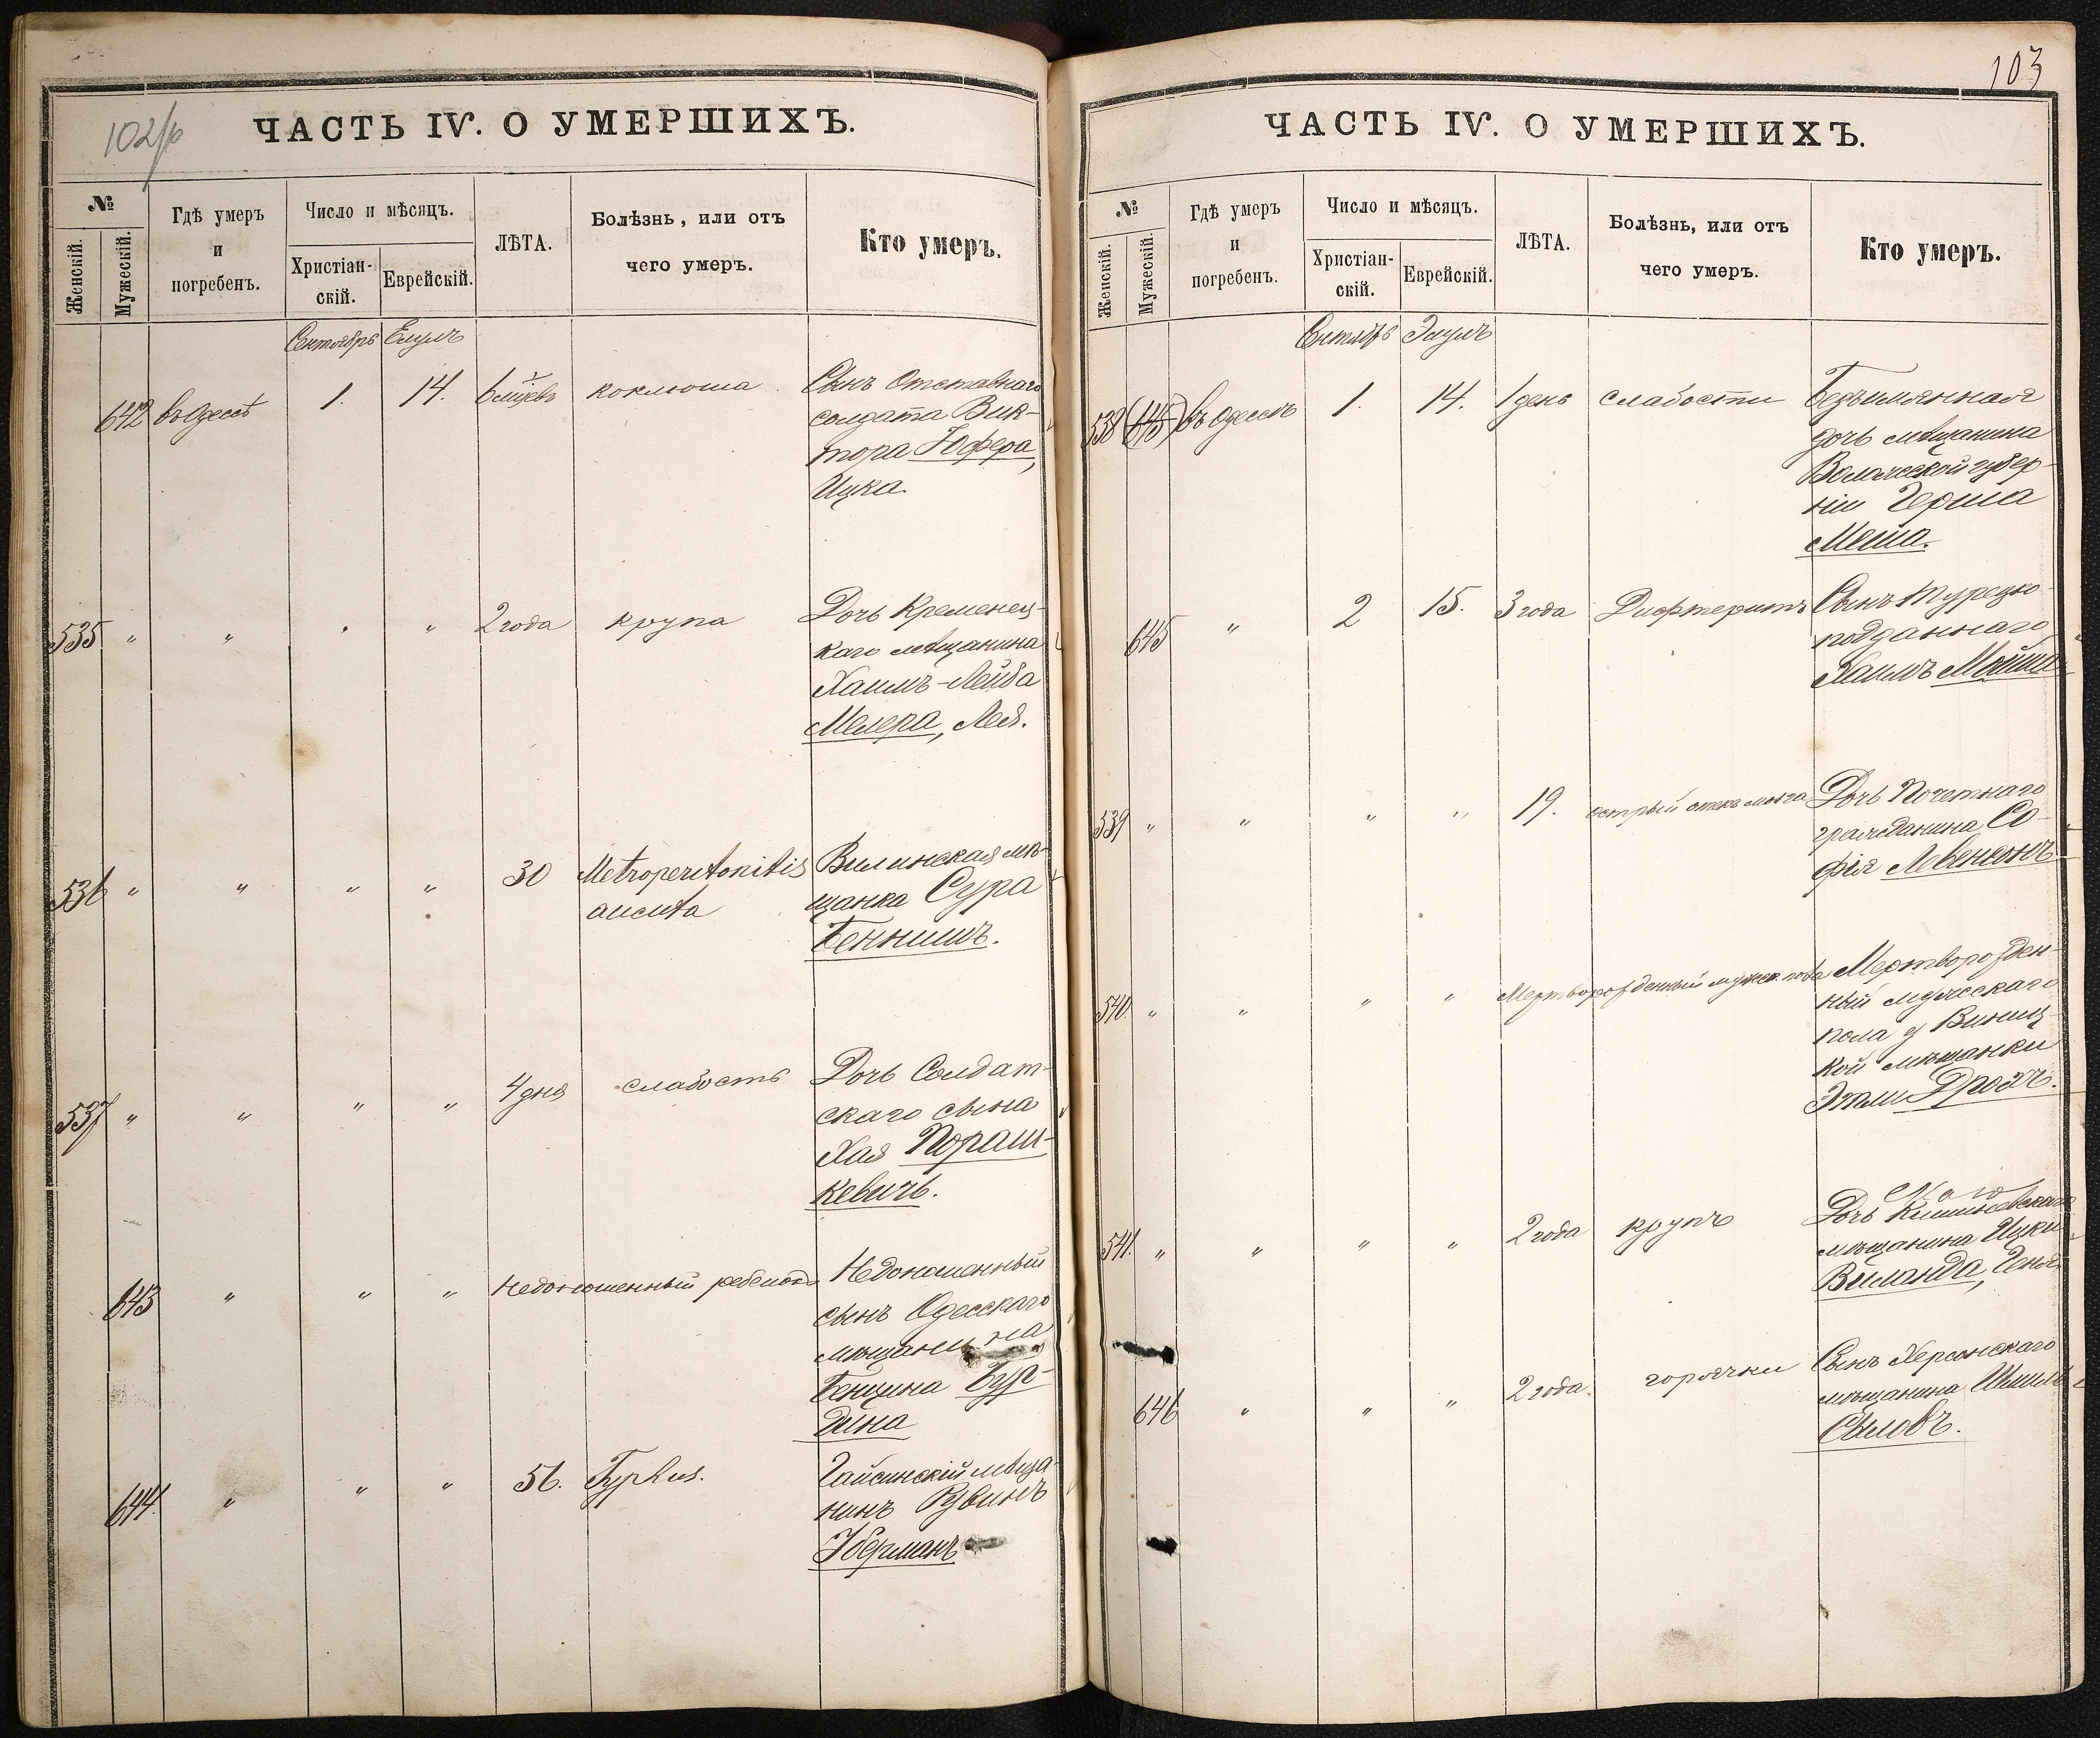 102/б
ЧАСТЬ IV. О УМЕРШИХЪ.
№
Женскій.
Мужескій.
Гдѣ умеръ
и
погребенъ.
Число и мѣсяцъ.
Христіан-
скій.
Еврейскій.
ЛѢТА.
Болѣзнь, или отъ
чего умеръ.
Кто умеръ.
Сентябрь Елулъ
642 въ Одессѣ 1. 14. 6 мѣсцевъ коклюша Сынъ Отставнаго
солдата Вик-
тора Юфера,
Ицка.
535 " " " " 2 года крупа Дочь Кременец-
каго мѣщанина
Хаимъ-Лейба
Мелера, Лея.
536 " " " " 30 Metroperitonitis Вилинская мѣ-
acuta щанка Сура
Беннимъ.
537 " " " " 4 дня слабость Дочь Солдат-
скаго сына
Хая Пораш-
кевичъ.
643 " " " Недоношенный ребенокъ Недоношенный
сынъ Одесскаго
мѣщанина
Бенциона Бур-
дина
644 " " " 56. Typhus. Гайсинскій мѣща-
нинъ Рувинъ
Уберманъ
103
ЧАСТЬ IV. О УМЕРШИХЪ.
№
Женскій.
Мужескій.
Гдѣ умеръ
и
погребенъ.
Число и мѣсяцъ.
Христіан-
скій.
Еврейскій.
ЛѢТА.
Болѣзнь, или отъ
чего умеръ.
Кто умеръ.
Сентябрь Элулъ
538 (645) въ Одессѣ 1. 14. 1 день слабости Безъимянная
дочь мѣщанина
губер-
ніи Герша
Меша.
645 " 2 15. 3 года Дифтеритъ Сынъ турецко-
подданнаго
Хаимъ Мойша
539 " " " " 19. острый отекъ мозга Дочь Почетнаго
гражданина Со-
фія Левенсонъ
540. " " " " Мертворожденный мужск. пола Мертворожден-
ный мужескаго
пола у Винниц-
кой мѣщанки
Этли Дрохъ.
541. " " " " 2 года крупъ Дочь Кишиневскаго
мѣщанина Ицки
Вейланда, Геня.
646 " " " 2 года. горячки Сынъ Херсонскаго
мѣщанина Шмиль